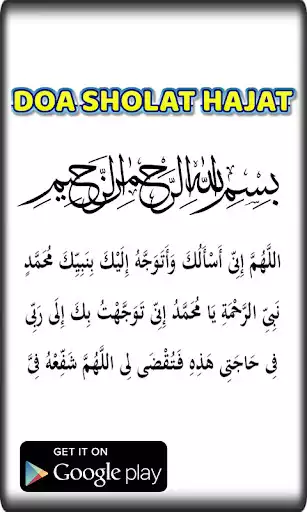 DOA SHOLAT HAJAT
بِسْمِ اللهِ الرَّحْمٰنِ الرَّحِيْمِ
اللَّهُمَّ إِنِّي أَسْأَلُكَ وَأَتَوَجَّهُ إِلَيْكَ بِنَبِيِّكَ مُحَمَّدٍ
نَبِيِّ الرَّحْمَةِ يَا مُحَمَّدُ إِنِّي تَوَجَّهْتُ بِكَ إِلَى رَبِّي
فِي حَاجَتِي هَذِهِ فَتُقْضَى لِي اللَّهُمَّ شَفِّعْهُ فِيَّ
GET IT ON
Google play